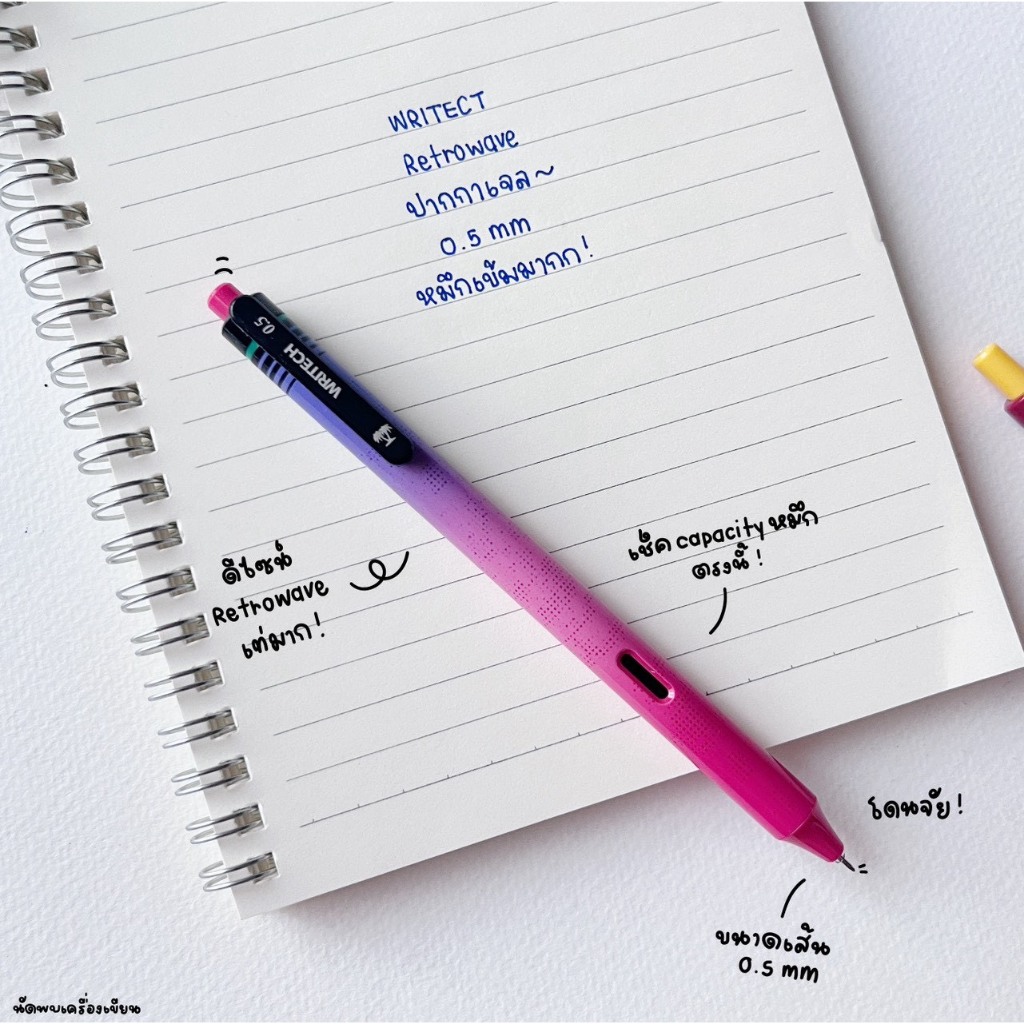 WRITECT
Retrowave
ปากกาเจล~
0.5 mm
หมึกเข้มมากก!
0.5 WRITECH
ดีไซน์
Retrowave
เท่มาก!
เช็ค capacity หมึก
ตรงนี้!
โดนจัย!
ขนาดเส้น
0.5 mm
นัดพบเครื่องเขียน